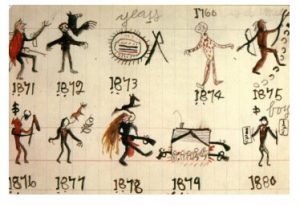 years 1760
1871 1872 1873 1874 1875
$ $ boy
1876 1877 1878 1879 1880